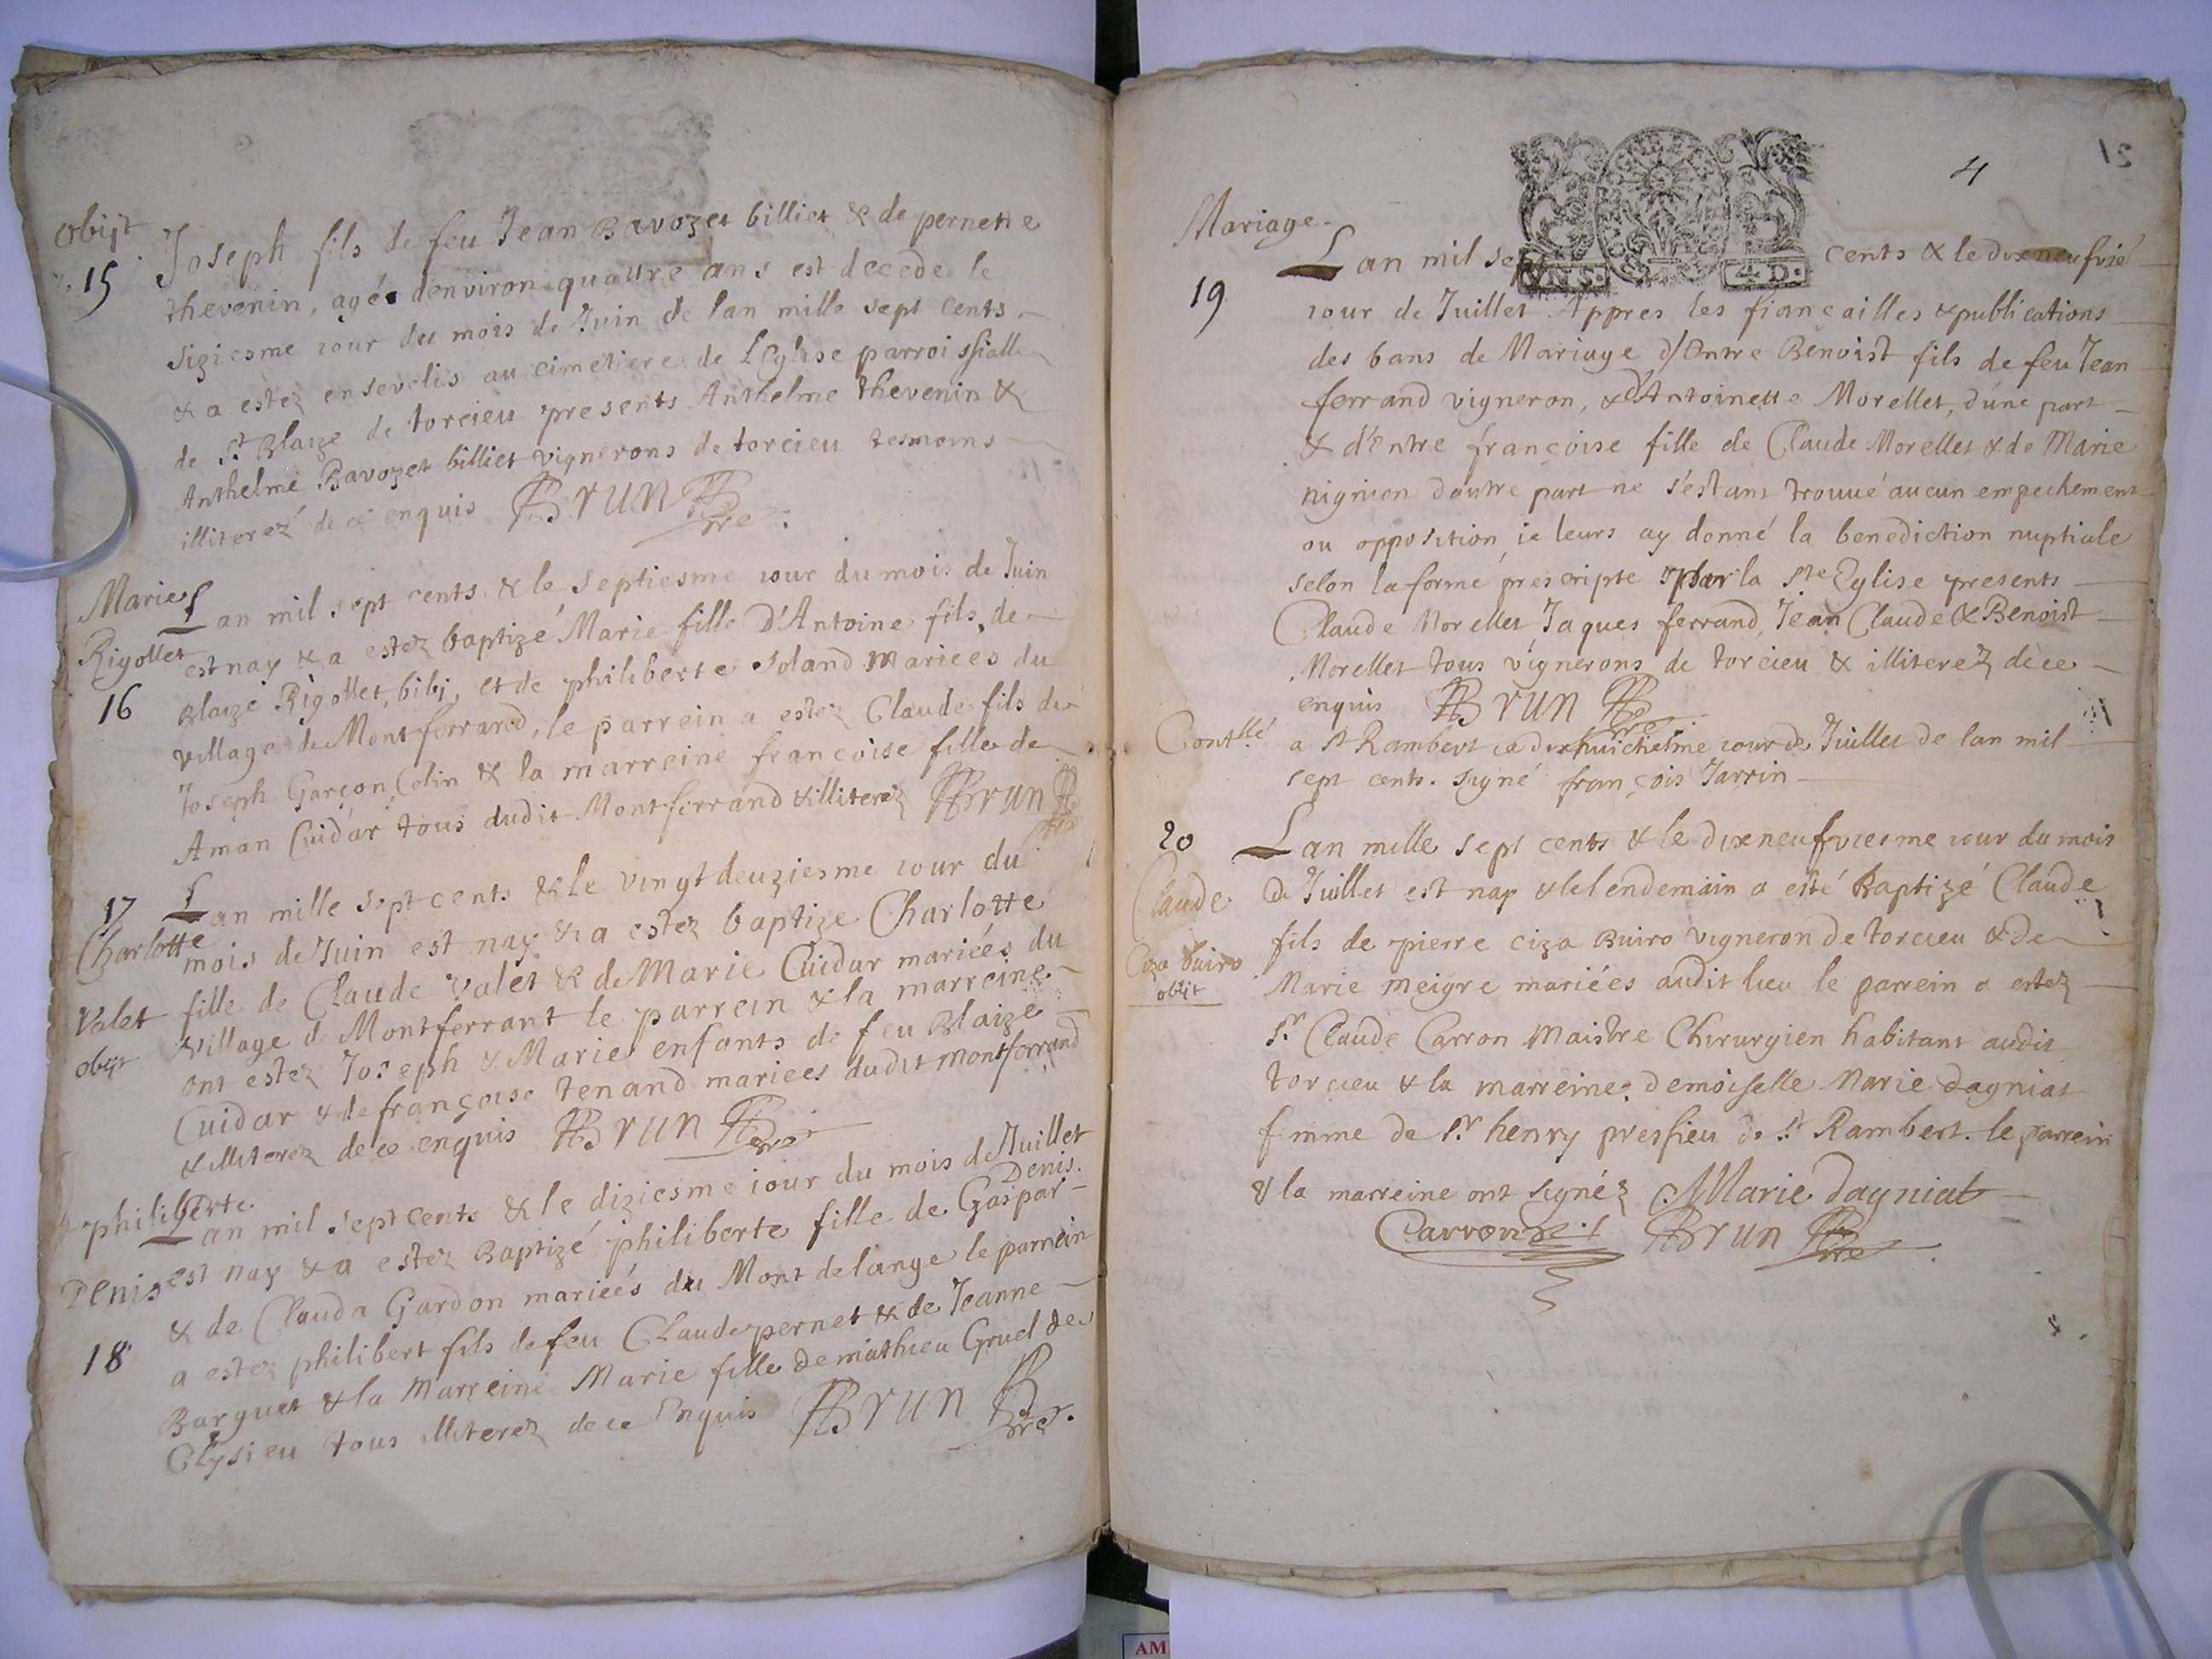 Obijt
15
Joseph fils de feu Jean Bavozet billiet & de pernette
thevenin, agé denviron quattre ans est decede le
siziesme iour du mois de Juin de lan mille sept cents
& a estez ensevelis au cimetiere de LEglise parroissialle
de St Blaize de torcieu presents Anthelme thevenin &
Anthelme Bavozet billiet vignerons de torcieu tesmoins
illiterez de ce enquis Brun pre
Marie
Rigollet
16
Lan mil sept cents & le septiesme iour du mois de Juin
est nay & a estez baptizé Marie fille D'Antoine fils de
Blaize Rigollet, bibi, et de philiberte Soland mariees du
village de Montferrand, le parrein a estez Claude fils de
Joseph Garçon Colin & la marreine francoise fille de
Aman Cuidar tous dudit Montferrand & illiterez Brun pre
17
Charlotte
Valet
obijt
Lan mille sept cents & le vingt deuziesme iour du
mois de Juin est nay & a estez baptize Charlotte
fille de Claude Valet & de Marie Cuidar mariées du
village de Montferrant le parrein & la marreine
ont estez Joseph & Marie enfants de feu Blaize
Cuidar & de françoise tenand mariees dudit montferrand
& illiterez de ce enquis Brun pre
philiberte
Denis
18
Lan mil sept cents & le diziesme iour du mois de Juillet
est nay & a estez Baptizé philiberte fille de Gaspar Denis
& de Clauda Gardon mariées du Mont delange le parrein
a estez philibert fils de feu Claude pernet & de Jeanne
Barguet & la Marreine Marie fille de mathieu Gruel de
Clysieu tous illiterez de ce Enquis Brun pre
4
21
Mariage
19
Lan mil sept cents & le dixneufvié
iour de Juillet Appres les fiançailles & publications
des bans de Mariage d'Entre Benoist fils de feu Jean
ferrand vigneron, & d'Antoinette Morellet, d'une part
& d'entre françoise fille de Claude Morellet & de Marie
nignion dautre part ne s'estant trouué aucun empechement
ou opposition ie leurs ay donné la benediction nuptiale
selon la forme prescripte par la Ste Eglise presents
Claude Morellet Jaques ferrand, Jean Claude & Benoist
Morellet tous vignerons de torcieu & illiterez de ce
enquis Brun pre
Contllé a St Rambert ce dixhuichesme iour de Juillet de lan mil
sept cents. signé françois Jarrin
20
Claude
Ciza buiro
obijt
Lan mille sept cents & le dixneufviesme iour du mois
de Juillet est nay & le lendemain a esté Baptizé Claude
fils de pierre ciza Buiro vigneron de torcieu & de
Marie meigre mariées audit lieu le parrein a estez
Sr Claude Carron Maistre Chirurgien habitant audit
torcieu & la marreine demoiselle Marie dagniat
femme de Sr henry pressieu de St Rambert. le parrein
& la marreine ont signéz Marie dagniat
Carron Brun pre
UNS. 4 D.
AM